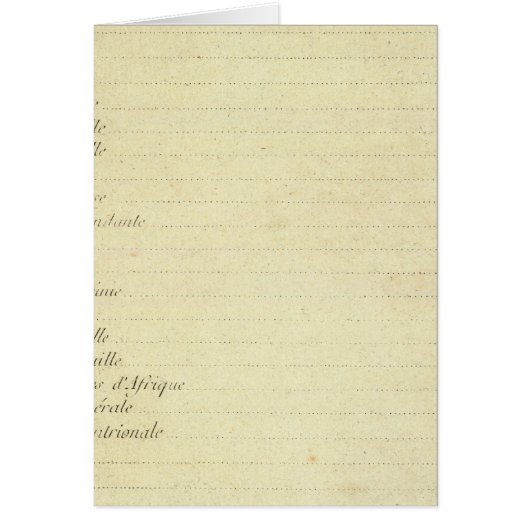 le
lle
re
ndante
inie
lle
uille
s d'Afrique
érale
ntrionale